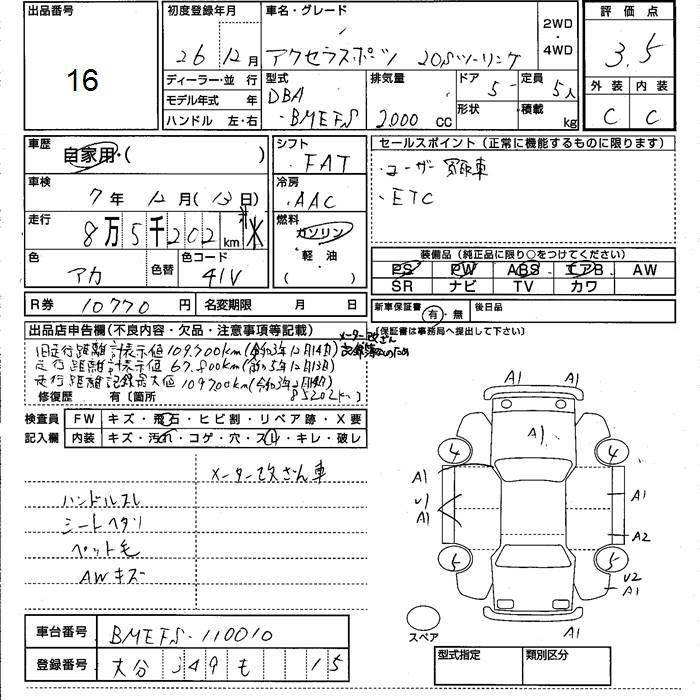 出品番号
16
初度登録年月
26年12月
車名・グレード
アクセラスポーツ 20Sツーリング
2WD
・
4WD
評価点
3.5
外装 内装
C C
ディーラー・並行
モデル年式 年
ハンドル 左・右
型式
DBA
・BMEFS
排気量
2000 CC
ドア 5
形状
定員
5人
積載
kg
車歴
自家用・( )
シフト
FAT
セールスポイント(正常に機能するものに限ります)
・ユーザー買取車
・ETC
車検
7年 12月(13日)
冷房
AAC
走行
8万5千202km
燃料
ガソリン
軽油
( )
色
アカ
色替
色コード
41V
装備品(純正品に限り○をつけてください)
PS PW ABS エアB AW
SR ナビ TV カワ
R券 10770円
名変期限 月 日
新車保証書 有・無
後日品
(保証書は事務局へ提出して下さい)
出品店申告欄(不良内容・欠品・注意事項等記載)
メーター改ざん
旧走行距離計表示値109,700km(令和3年12月14日)
走行距離計表示値67,800km(令和5年12月13日)
走行距離記録最大値109700km(令和3年12月14日)
85202km)
修復歴 有(箇所
検査員
記入欄
FW キズ・飛石・ヒビ割・リペア跡・X要
内装 キズ・汚れ・コゲ・穴・スレ・キレ・破レ
メーター改ざん車
ハンドルスレ
シートヘタリ
ペット毛
AWキズ
A1
A1
4 4
A1
U1
A1
A1
A2
5 5
U2
A1
A1
スペア
車台番号 BMEFS-110010
登録番号 大分 349 も 15
型式指定 類別区分